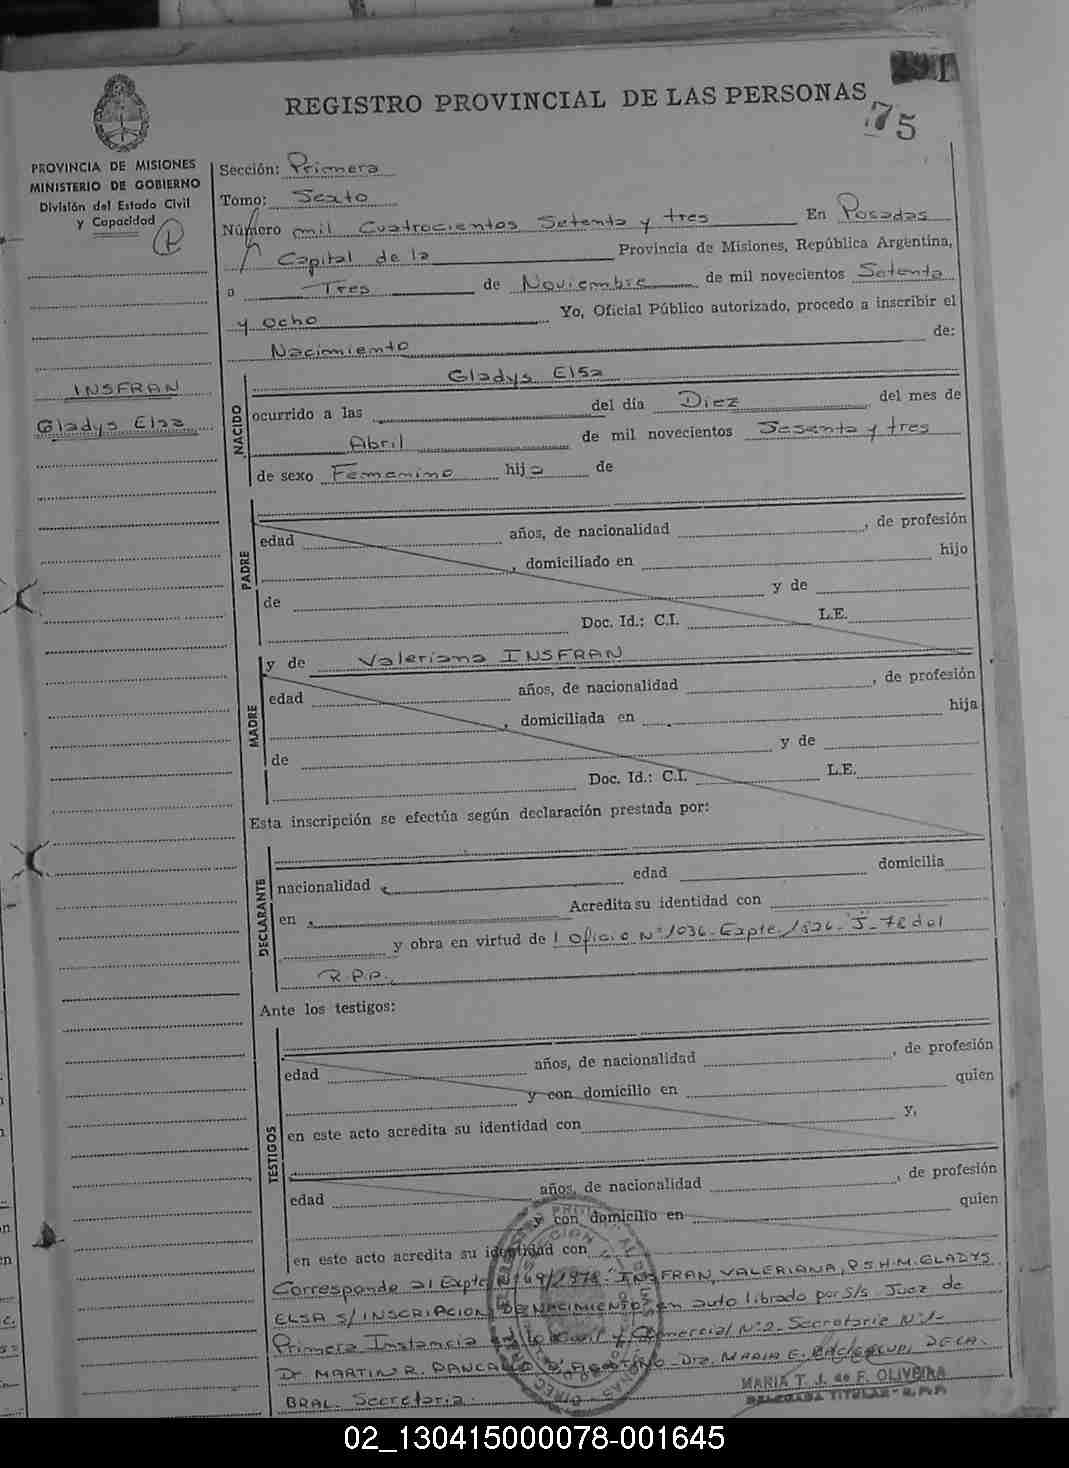 291
REGISTRO PROVINCIAL DE LAS PERSONAS
75
PROVINCIA DE MISIONES
MINISTERIO DE GOBIERNO
División del Estado Civil
y Capacidad
Sección: Primera
Tomo: Sexto
Número mil Cuatrocientos Setenta y tres En Posadas
Capital de la Provincia de Misiones, República Argentina,
a Tres de Noviembre de mil novecientos Setenta
y ocho Yo, Oficial Público autorizado, procedo a inscribir el
Nacimiento de:
INSFRAN
Gladys Elsa
NACIDO
Gladys Elsa
ocurrido a las del día Diez del mes de
Abril de mil novecientos Sesenta y tres
de sexo Femenino hija de
PADRE
edad años, de nacionalidad , de profesión
, domiciliado en hijo
de y de
Doc. Id.: C.I. L.E.
MADRE
y de Valeriana INSFRAN
edad años, de nacionalidad , de profesión
, domiciliada en hija
de y de
Doc. Id.: C.I. L.E.
Esta inscripción se efectúa según declaración prestada por:
DECLARANTE
nacionalidad edad domicilia
en Acredita su identidad con
y obra en virtud de Oficio Nº 1036-Expte. 1826-"J"-78 del
R.P.P.
Ante los testigos:
TESTIGOS
edad años, de nacionalidad , de profesión
y con domicilio en quien
en este acto acredita su identidad con y,
edad años, de nacionalidad , de profesión
y con domicilio en quien
en este acto acredita su identidad con
Corresponde al Expte Nº 49/1978: INSFRAN, VALERIANA, P.S.H.M. GLADYS
ELSA S/ INSCRIPCION DE NACIMIENTO en auto librado por S/S Juez de
Primera Instancia en lo Civil y Comercial Nº2- Secretaria Nº1-
Dr MARTIN R. Dra. MARIA E. DE CA-
BRAL. Secretaria.
MARIA T. J. de F. OLIVEIRA
DELEGADA TITULAR - R.P.P.
02_130415000078-001645